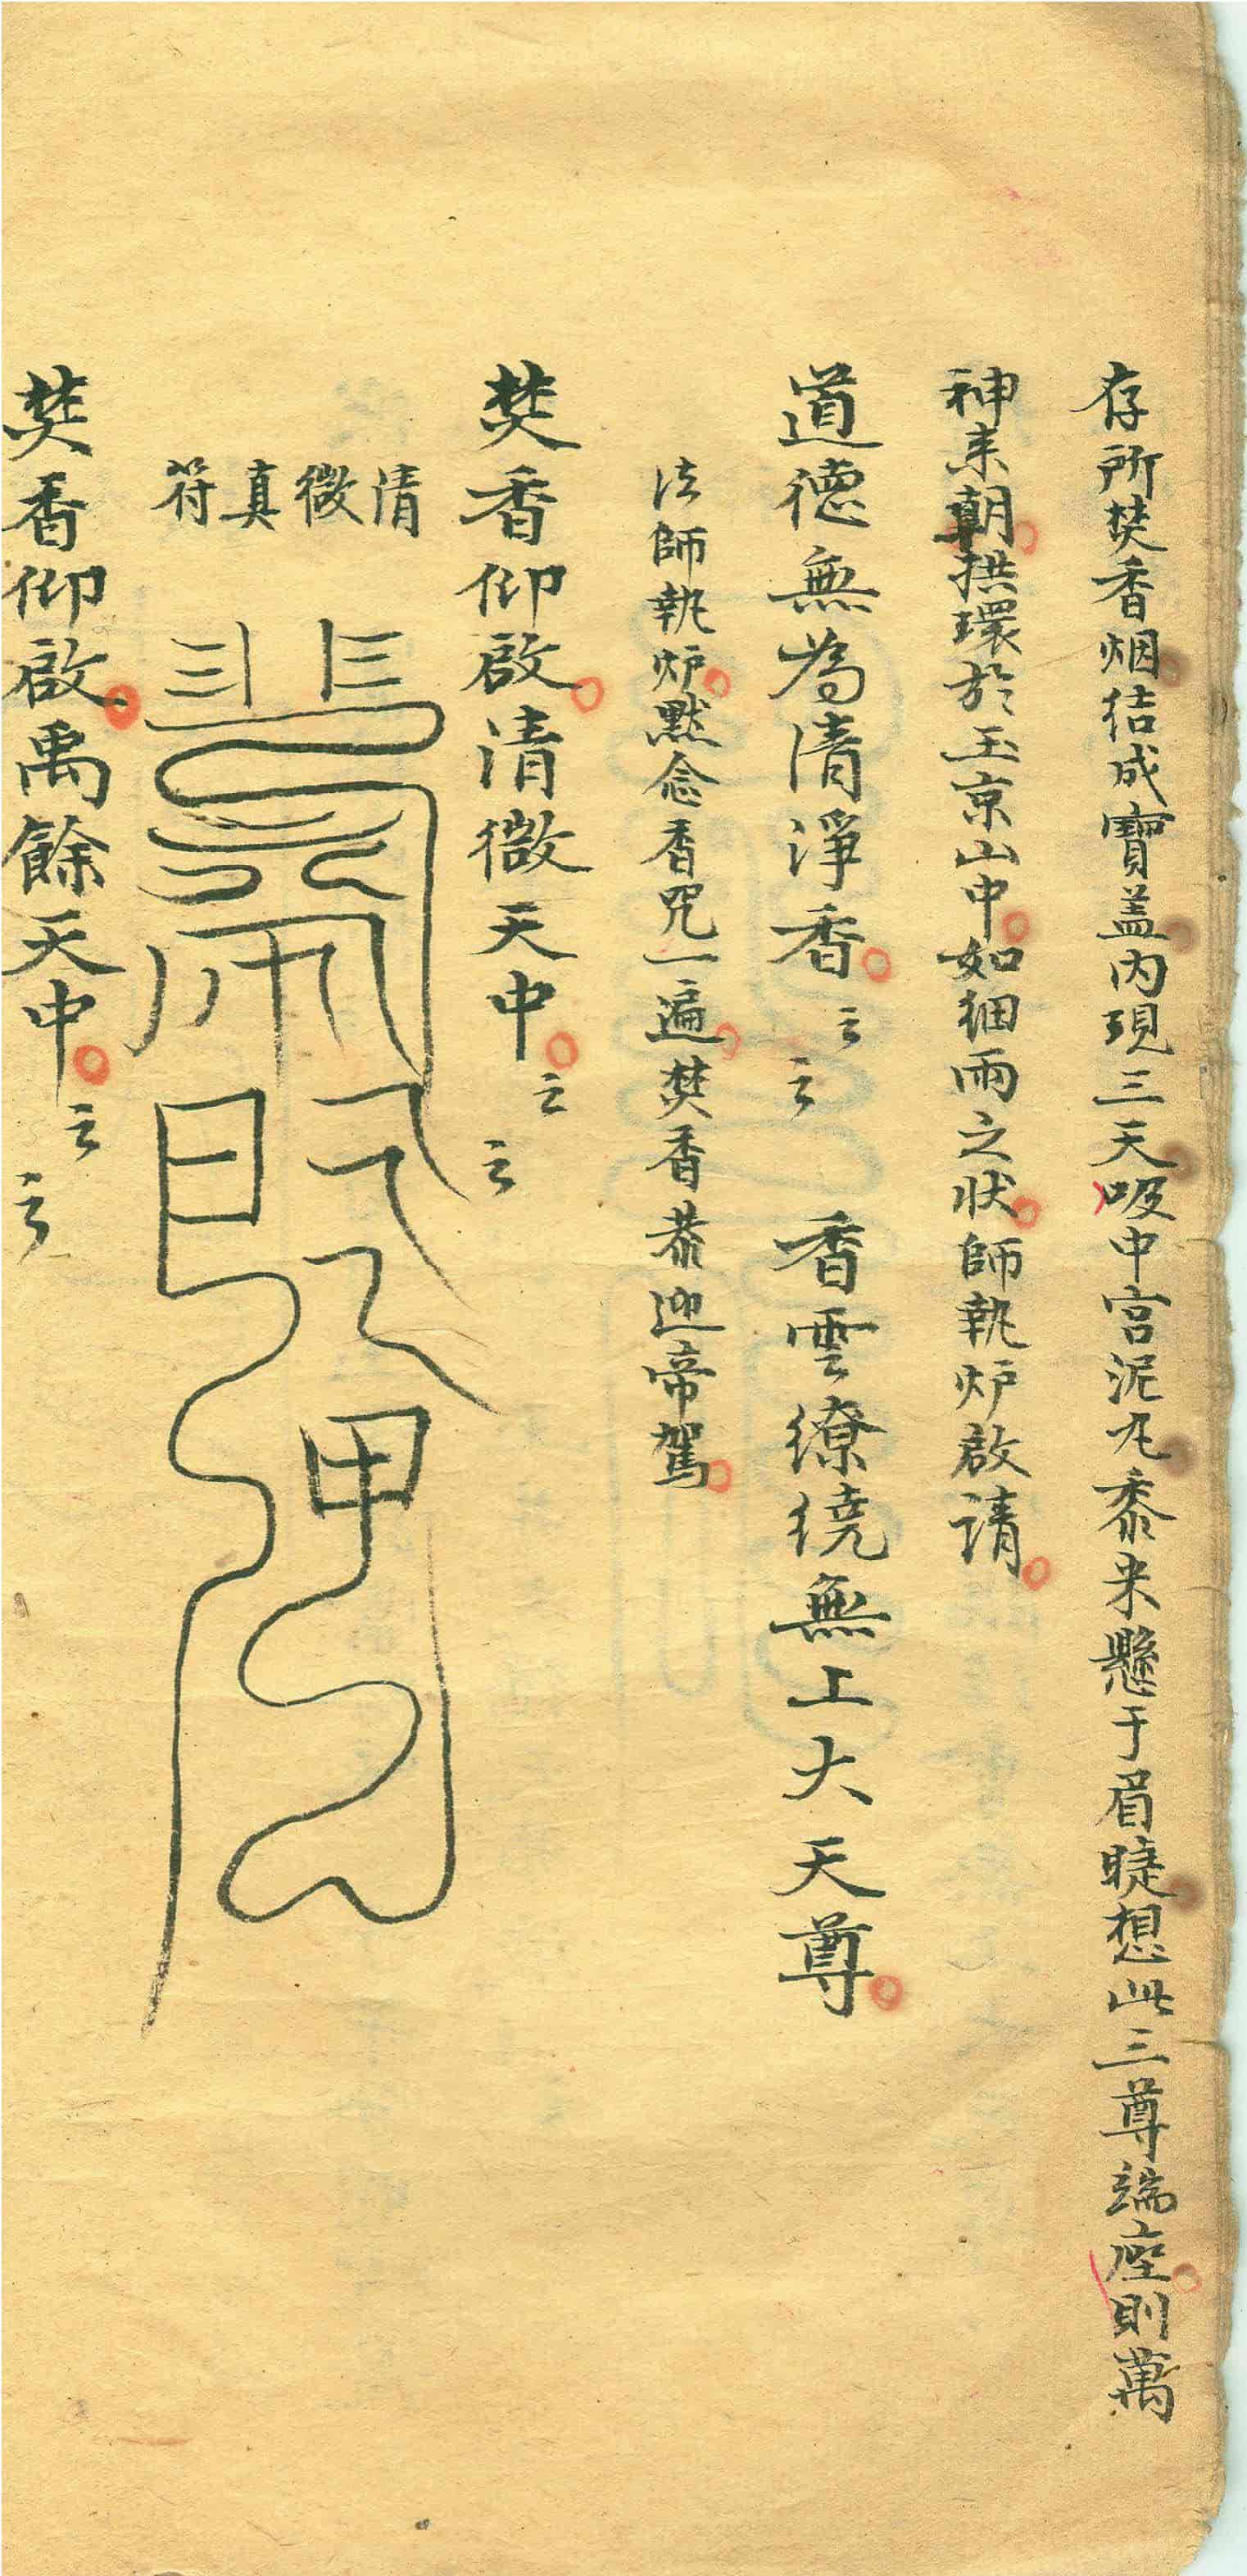 存所焚香烟结成寶盖内現三天吸中宫泥丸黍米懸于眉睫想此三尊端座則萬
神来朝拱環於玉京山中如細雨之状師執炉啟請
道德無為清淨香云云　香雲繚繞無上大天尊
法師執炉默念香咒一遍焚香恭迎帝駕
焚香仰啟清微天中云云
清微真符
焚香仰啟禹餘天中云云